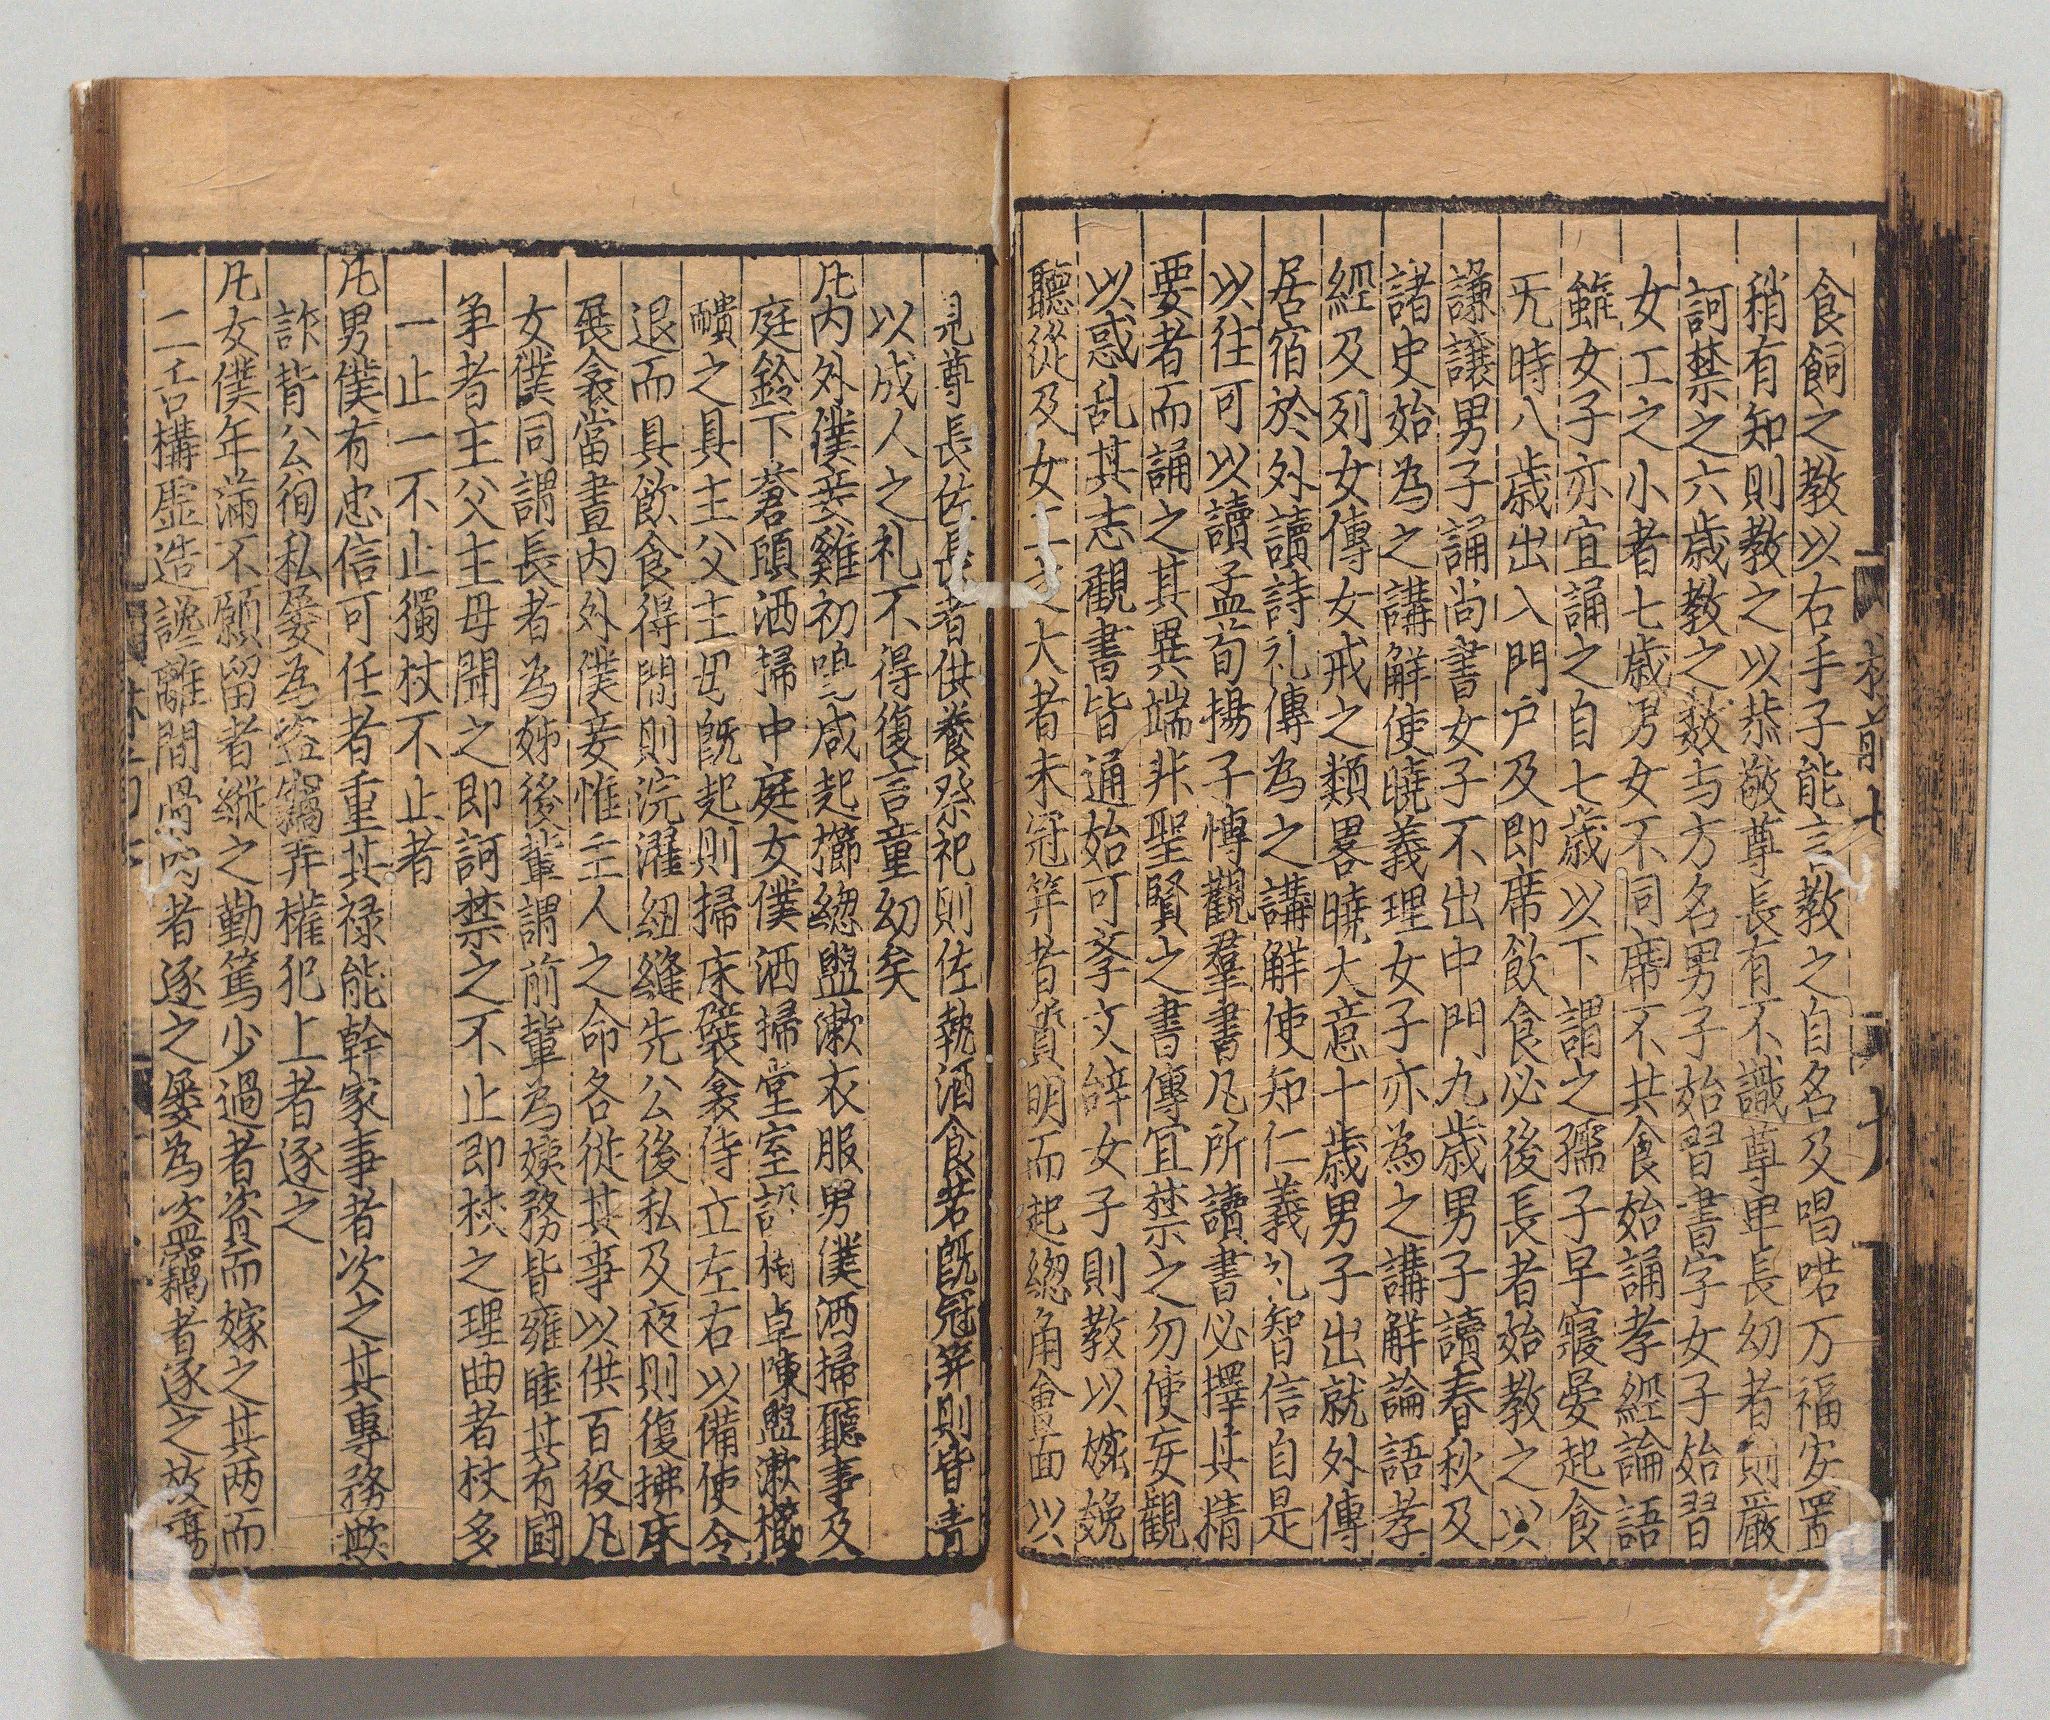 食飼之教以右手子能言教之自名及唱喏万福安置
稍有知則教之以恭敬尊長有不識尊卑長幼者則嚴
訶禁之六歲教之数与方名男子始習書字女子始習
女工之小者七歲男女不同席不共食始誦孝經論語
雖女子亦宜誦之自七歲以下謂之孺子早寢晏起食
无時八歲出入門戶及即席飲食必後長者始教之以
謙讓男子誦尚書女子不出中門九歲男子讀春秋及
諸史始為之講解使曉義理女子亦為之講解論語孝
經及列女傳女戒之類畧曉大意十歲男子出就外傳
居宿於外讀詩礼傳為之講解使知仁義礼智信自是
以往可以讀孟荀揚子愽觀羣書凡所讀書必擇其精
要者而誦之其異端非聖賢之書傳宜禁之勿使妄觀
以惑乱其志觀書皆通始可斈文辞女子則教以婉娩
聽從及女工之大者未冠笄者質明而起緫角靧面以
見尊長佐長者供養祭祀則佐執酒食若旣冠笄則皆責
以成人之礼不得復言童幼矣
凡内外僕妾雞初鳴咸起櫛緫盥漱衣服男僕洒掃廳事及
庭鈴下蒼頭洒掃中庭女僕洒掃堂室設椅卓陳盥漱櫛
靧之具主父主母旣起則掃床襞衾侍立左右以備使令
退而具飲食得閒則浣濯紉縫先公後私及夜則復拂床
展衾當晝内外僕妾惟主人之命各從其事以供百役凡
女僕同謂長者為姊後輩謂前輩為姨務皆雍睦其有鬪
争者主父主母聞之即訶禁之不止即杖之理曲者杖多
一止一不止獨杖不止者
凡男僕有忠信可任者重其祿能幹家事者次之其專務欺
詐背公徇私屡為盗竊弄權犯上者逐之
凡女僕年滿不願留者縱之勤篤少過者資而嫁之其两而
二舌構虛造讒離間骨肉者逐之屡為盗竊者逐之放蕩